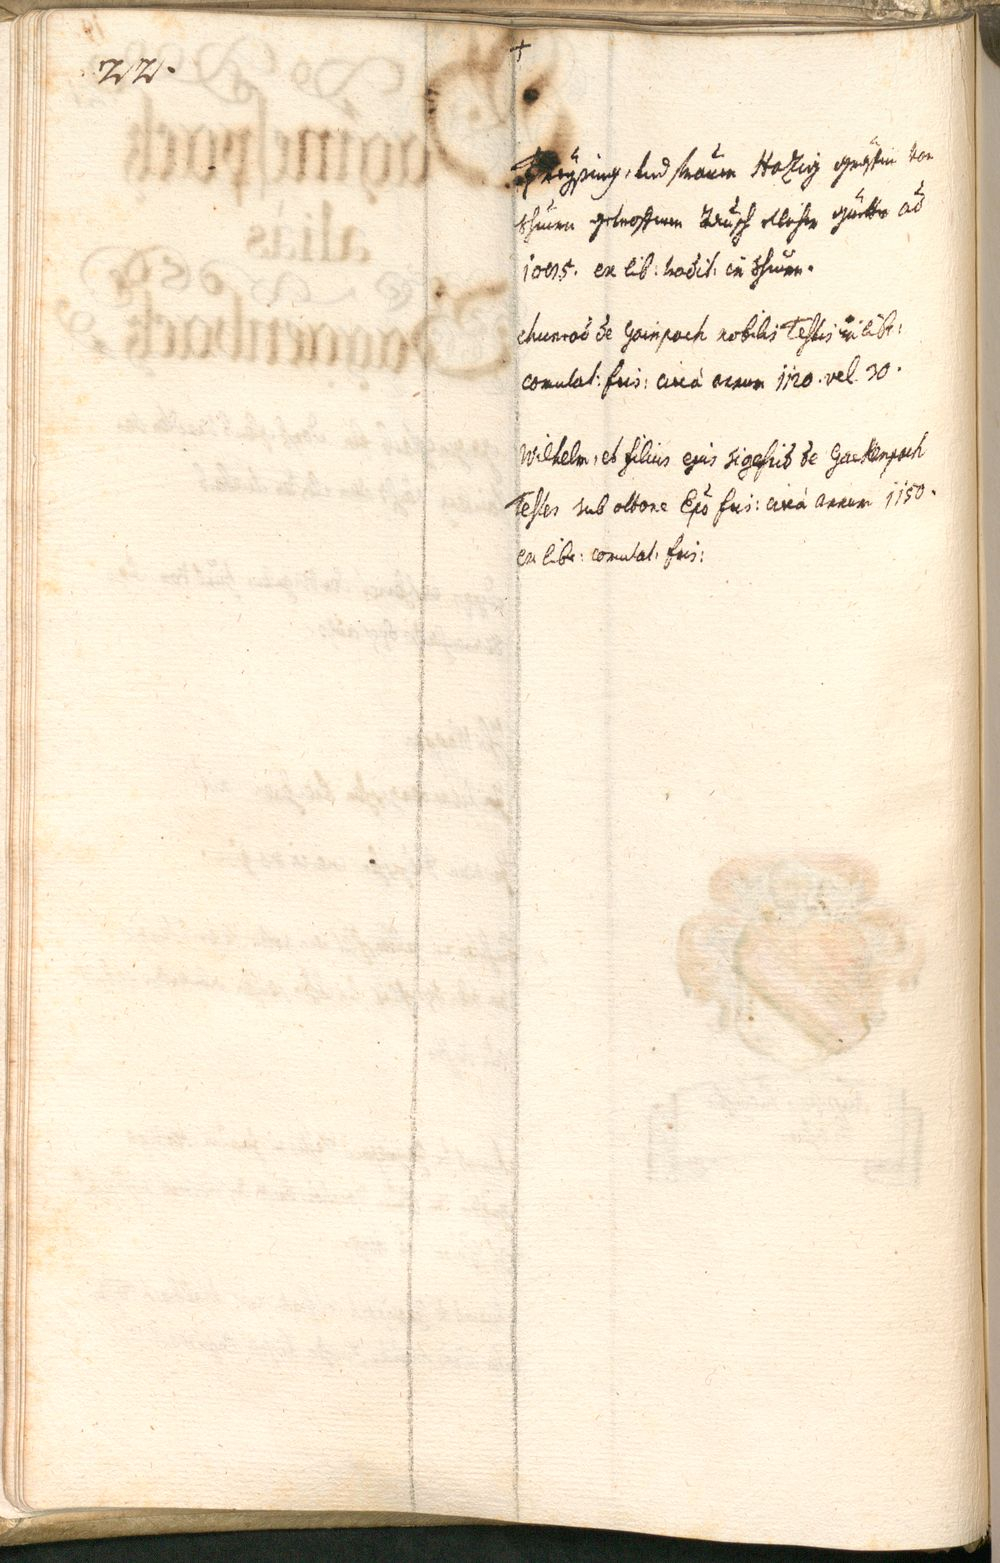 22.
+
Freysing, und frauen Hatzig gräfin von
Thurn getroffenen Tausch etlicher gütter ao
1085. ex lib: tradit: in Thurn.
chunrad de Gainpach nobilis Testis in libr:
comutat: fris: circa annum 1120. vel 30.
Wilhelm, et filius ejus Sigefrid de Gackenpach
Testes sub ottone Epo fris: circa annum 1150.
ex libr: comutat: fris: